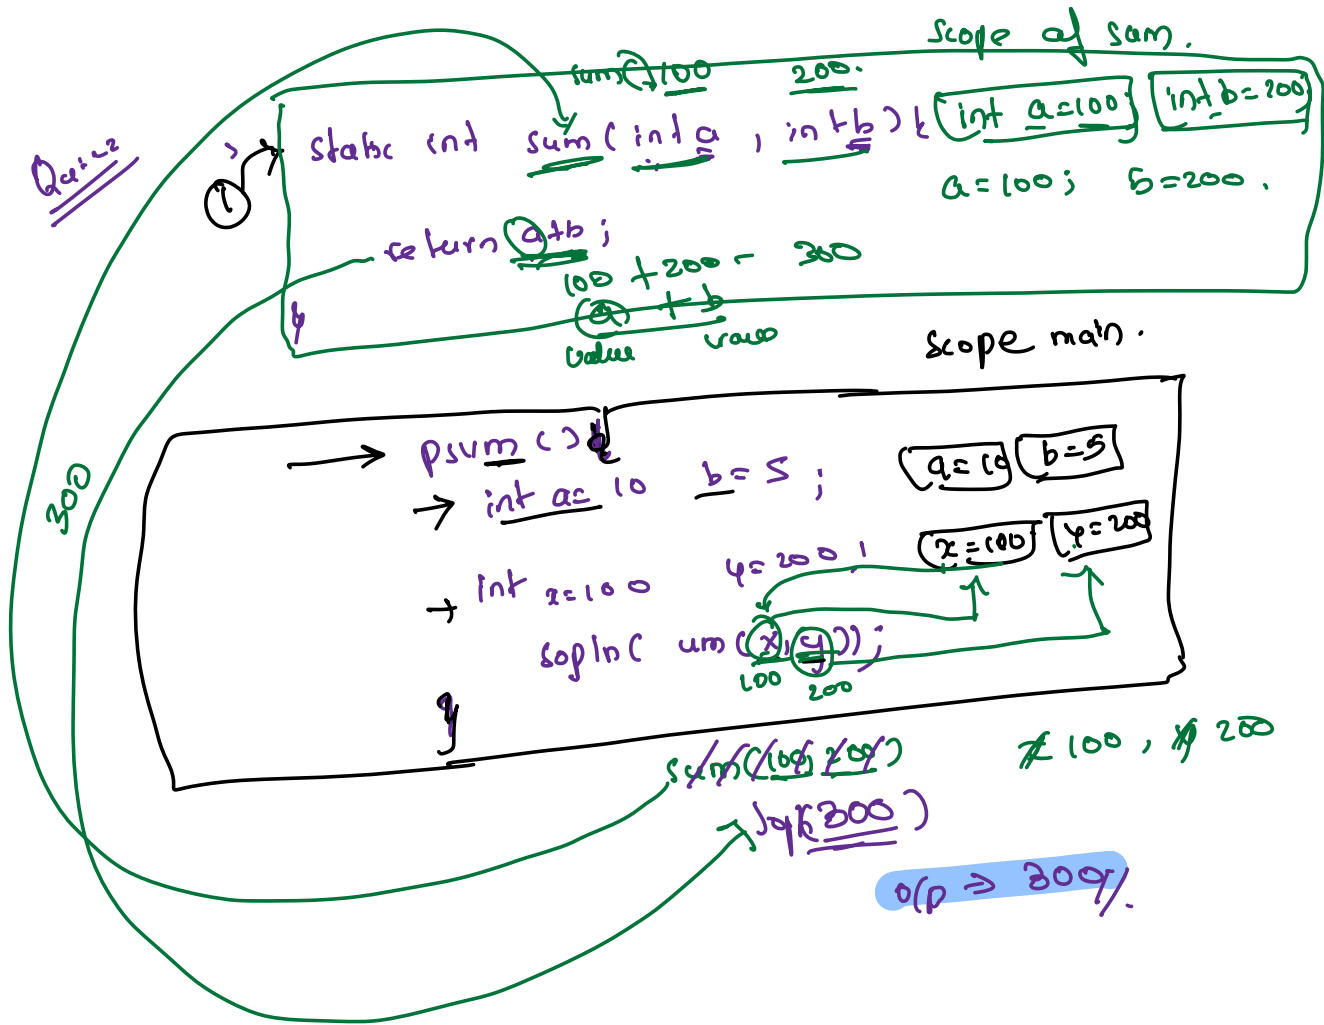 scope of sum.
sum( ) 100 200.
static int sum( int a , int b ) { int a=100 int b=200
1 a=100; b=200.
return a+b;
100 + 200 = 300
a + b
value value
}
scope main.
psvm ( ) {
int a= 10 b= 5 ; a=10 b=5
300
int x=100 y=200 ; x=100 y=200
sopln( um( x, y ));
100 200
}
sum(100, 200) x 100 , y 200
sopln(300)
o/p ⇒ 300//.